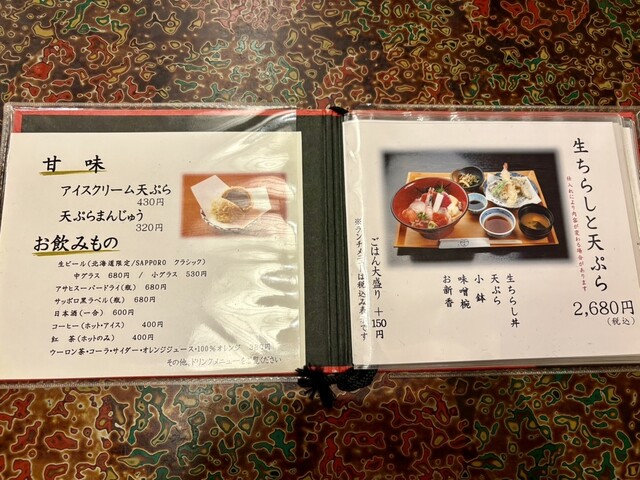 甘 味
アイスクリーム天ぷら
430円
天ぷらまんじゅう
320円
お飲みもの
生ビール(北海道限定/SAPPORO クラシック)
中グラス 680円 / 小グラス 530円
アサヒスーパードライ(瓶) 680円
サッポロ黒ラベル(瓶) 680円
日本酒(一合) 600円
コーヒー(ホット・アイス) 400円
紅 茶(ホットのみ) 400円
ウーロン茶・コーラ・サイダー・オレンジジュース・100%オレンジ
その他、ドリンクメニューをご覧ください
生ちらしと天ぷら
仕入れにより内容が変わる場合があります
2,680円
(税込)
生ちらし丼
天ぷら
小 鉢
味噌椀
お新香
ごはん大盛り +150円
※ランチメニューは税込み
です